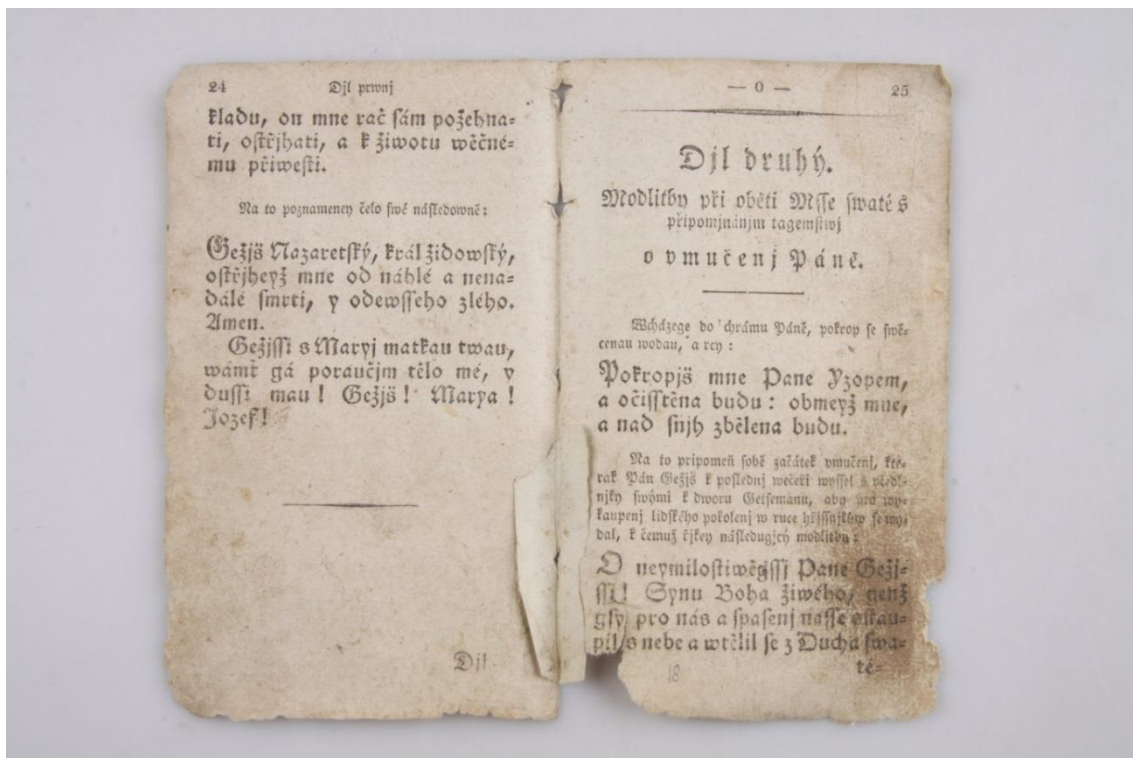 24 Djl prwnj
kladu, on mne rač sám požehna=
ti, ostřjhati, a k žiwotu wěčné=
mu přiwesti.
Na to poznameney čelo swé následowně:
Gežjš Nazaretský, král židowský,
ostřjheyž mne od náhlé a nena=
dálé smrti, y odewsseho zlého.
Amen.
Gežjssi s Maryj matkau twau,
wámť gá poraučjm tělo mé, y
dussi mau! Gežjš! Marya!
Jozef!
Djl
— 0 — 25
Djl druhý.
Modlitby při oběti Msse swaté s
připomjnánjm tagemstwj
o vmučenj Páně.
Wcházege do chrámu Páně, pokrop se swě=
cenau wodau, a rcy:
Pokropjš mne Pane Yzopem,
a očisstěna budu: obmeyž mne,
a nad snjh zbělena budu.
Na to pripomeň sobě začátek vmučenj, kte=
rak Pán Gežjš k poslednj wečeři wyssel s včedl=
njky swými k dworu Getsemanu, aby pro wy=
kaupenj lidského pokolenj w ruce hřjssnjkům se wy=
dal, k čemuž řjkey následugjcý modlitbu:
O neymilostiwěgssj Pane Gežj=
ssi! Synu Boha žiwého, genž
gsy pro nás a spasenj nasse sstau=
pil s nebe a wtělil se z Ducha swa=
té=
18